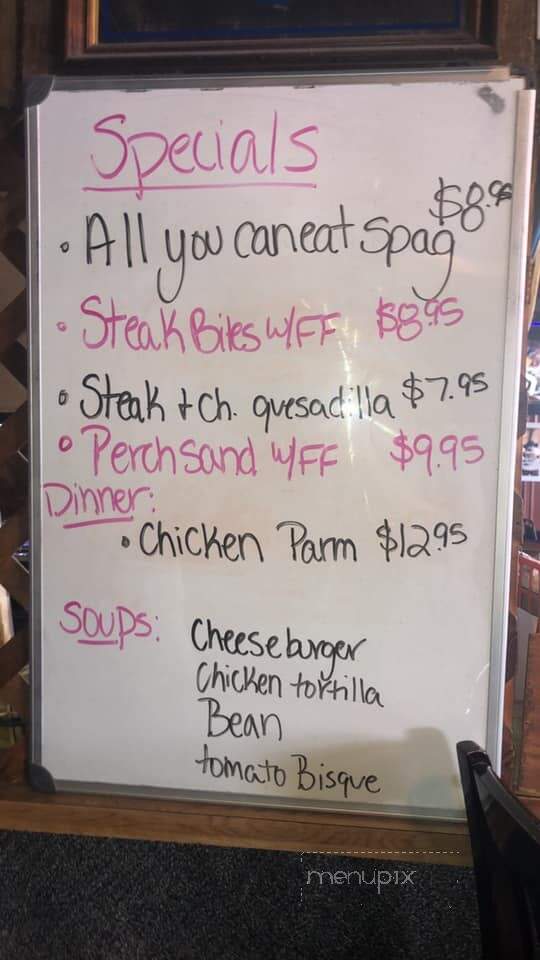 Specials
• All you can eat Spag $8.95
• Steak Bites W/FF $8.95
• Steak + Ch. quesadilla $7.95
• Perch Sand W/FF $9.95
Dinner:
• Chicken Parm $12.95
Soups: Cheeseburger
Chicken tortilla
Bean
tomato Bisque
menupix